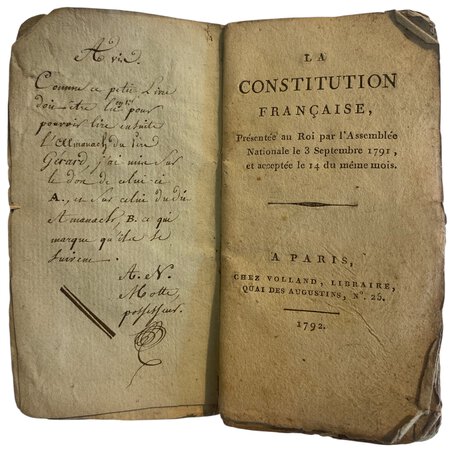 Avis.
Comme ce petit Livre
doit être lu pour
pouvoir lire ensuite
l'Almanach du Père
Gérard, j'ai mis sur
le dos de celui-ci
A., et sur celui du dit
Almanach, B. ce qui
marque qu'ils se
suivent.
A. N.
Motte,
possesseur.
LA
CONSTITUTION
FRANÇAISE,
Présentée au Roi par l'Assemblée
Nationale le 3 Septembre 1791,
et acceptée le 14 du même mois.
A PARIS,
CHEZ VOLLAND, LIBRAIRE,
QUAI DES AUGUSTINS, Nº. 25.
1792.